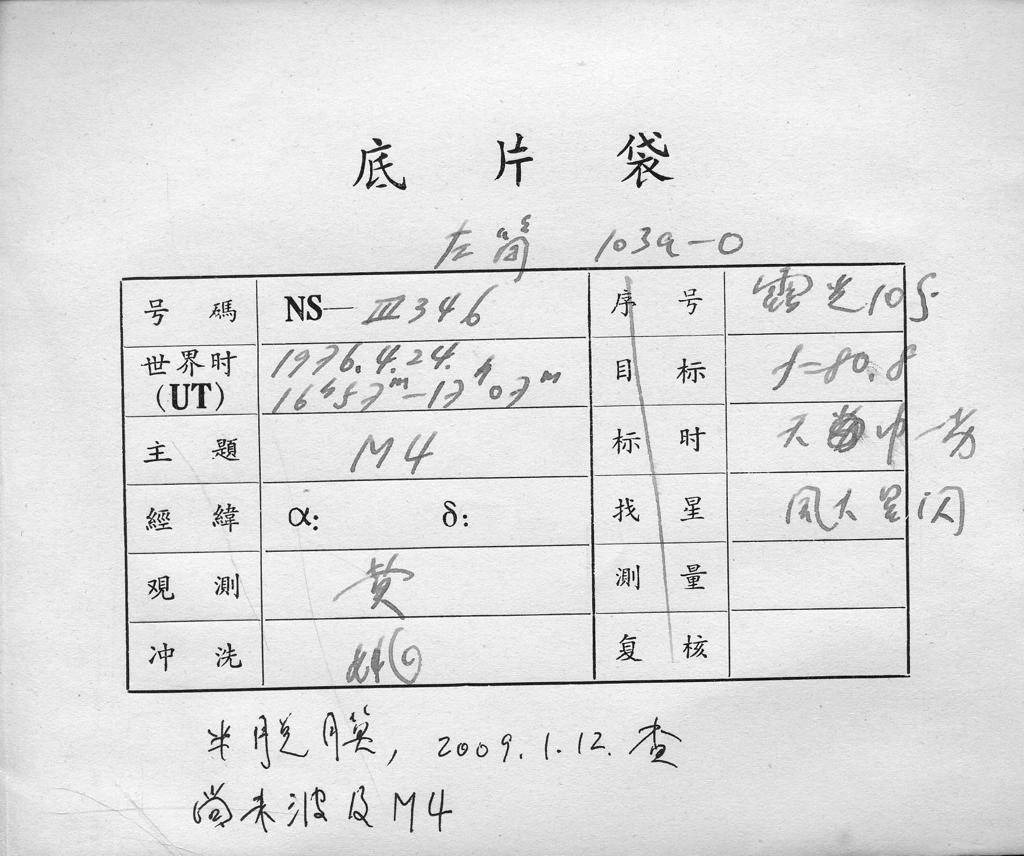 底片袋
左筒 103a-O
号碼 NS—III346 序号 露光10分
世界时 (UT) 1976.4.24. 16h57m-17h07m 目标 f=80.8
主題 M4 标时 天中一劣
經緯 α: δ: 找星 風大星闪
观測 黄 測量
冲洗 复核
半脱膜, 2009.1.12. 查
尚未波及M4